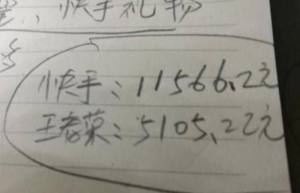 、快手礼物
快手：11566.2元
王老菜：5105.22元